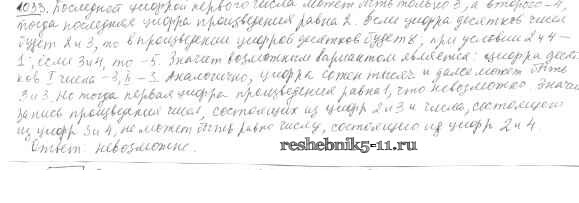 1023. Последней цифрой первого числа может быть только 3, а второго – 4,
тогда последняя цифра произведения равна 2. Если цифра десятков чисел
будет 2 и 3, то в произведении цифрой десятков будет 8, при условии 2 и 4 –
1; если 3 и 4, то – 5. Значит возможным вариантом является: цифры десят
ков I числа – 3, – 3. Аналогично, цифра сотен тысяч и далее может быть
3 и 3. Но тогда первая цифра произведения равна 1, что невозможно. Значит
запись произведения чисел, состоящих из цифр 2 и 3 и числа, состоящего
из цифр 3 и 4, не может быть равно числу, состоящио из цифр 2 и 4.
Ответ: невозможно.
reshebnik5-11.ru